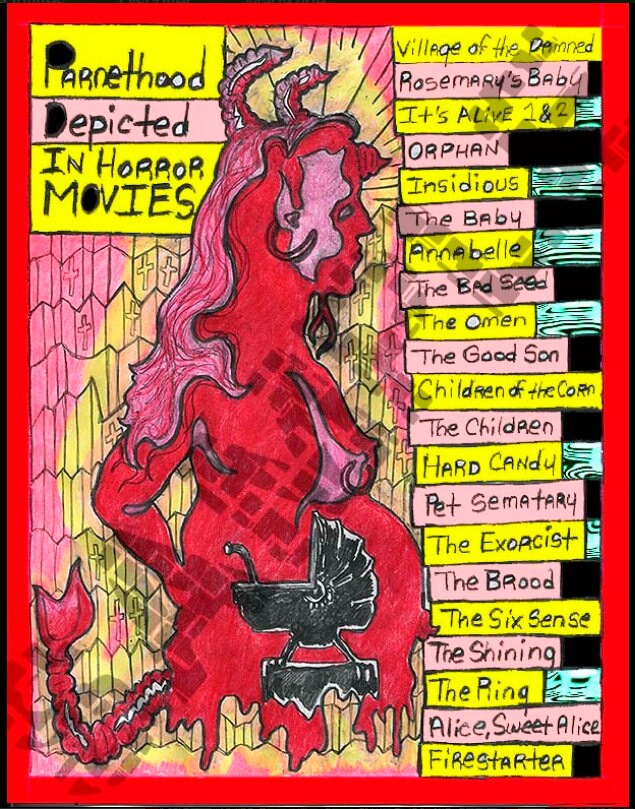 Parnethood
Depicted
In Horror
Movies
Village of the Damned
Rosemary's Baby
It's Alive 1&2
Orphan
Insidious
The Baby
Annabelle
The Bad Seed
The Omen
The Good Son
Children of the Corn
The Children
Hard Candy
Pet Sematary
The Exorcist
The Brood
The Six Sense
The Shining
The Ring
Alice, Sweet Alice
Firestarter